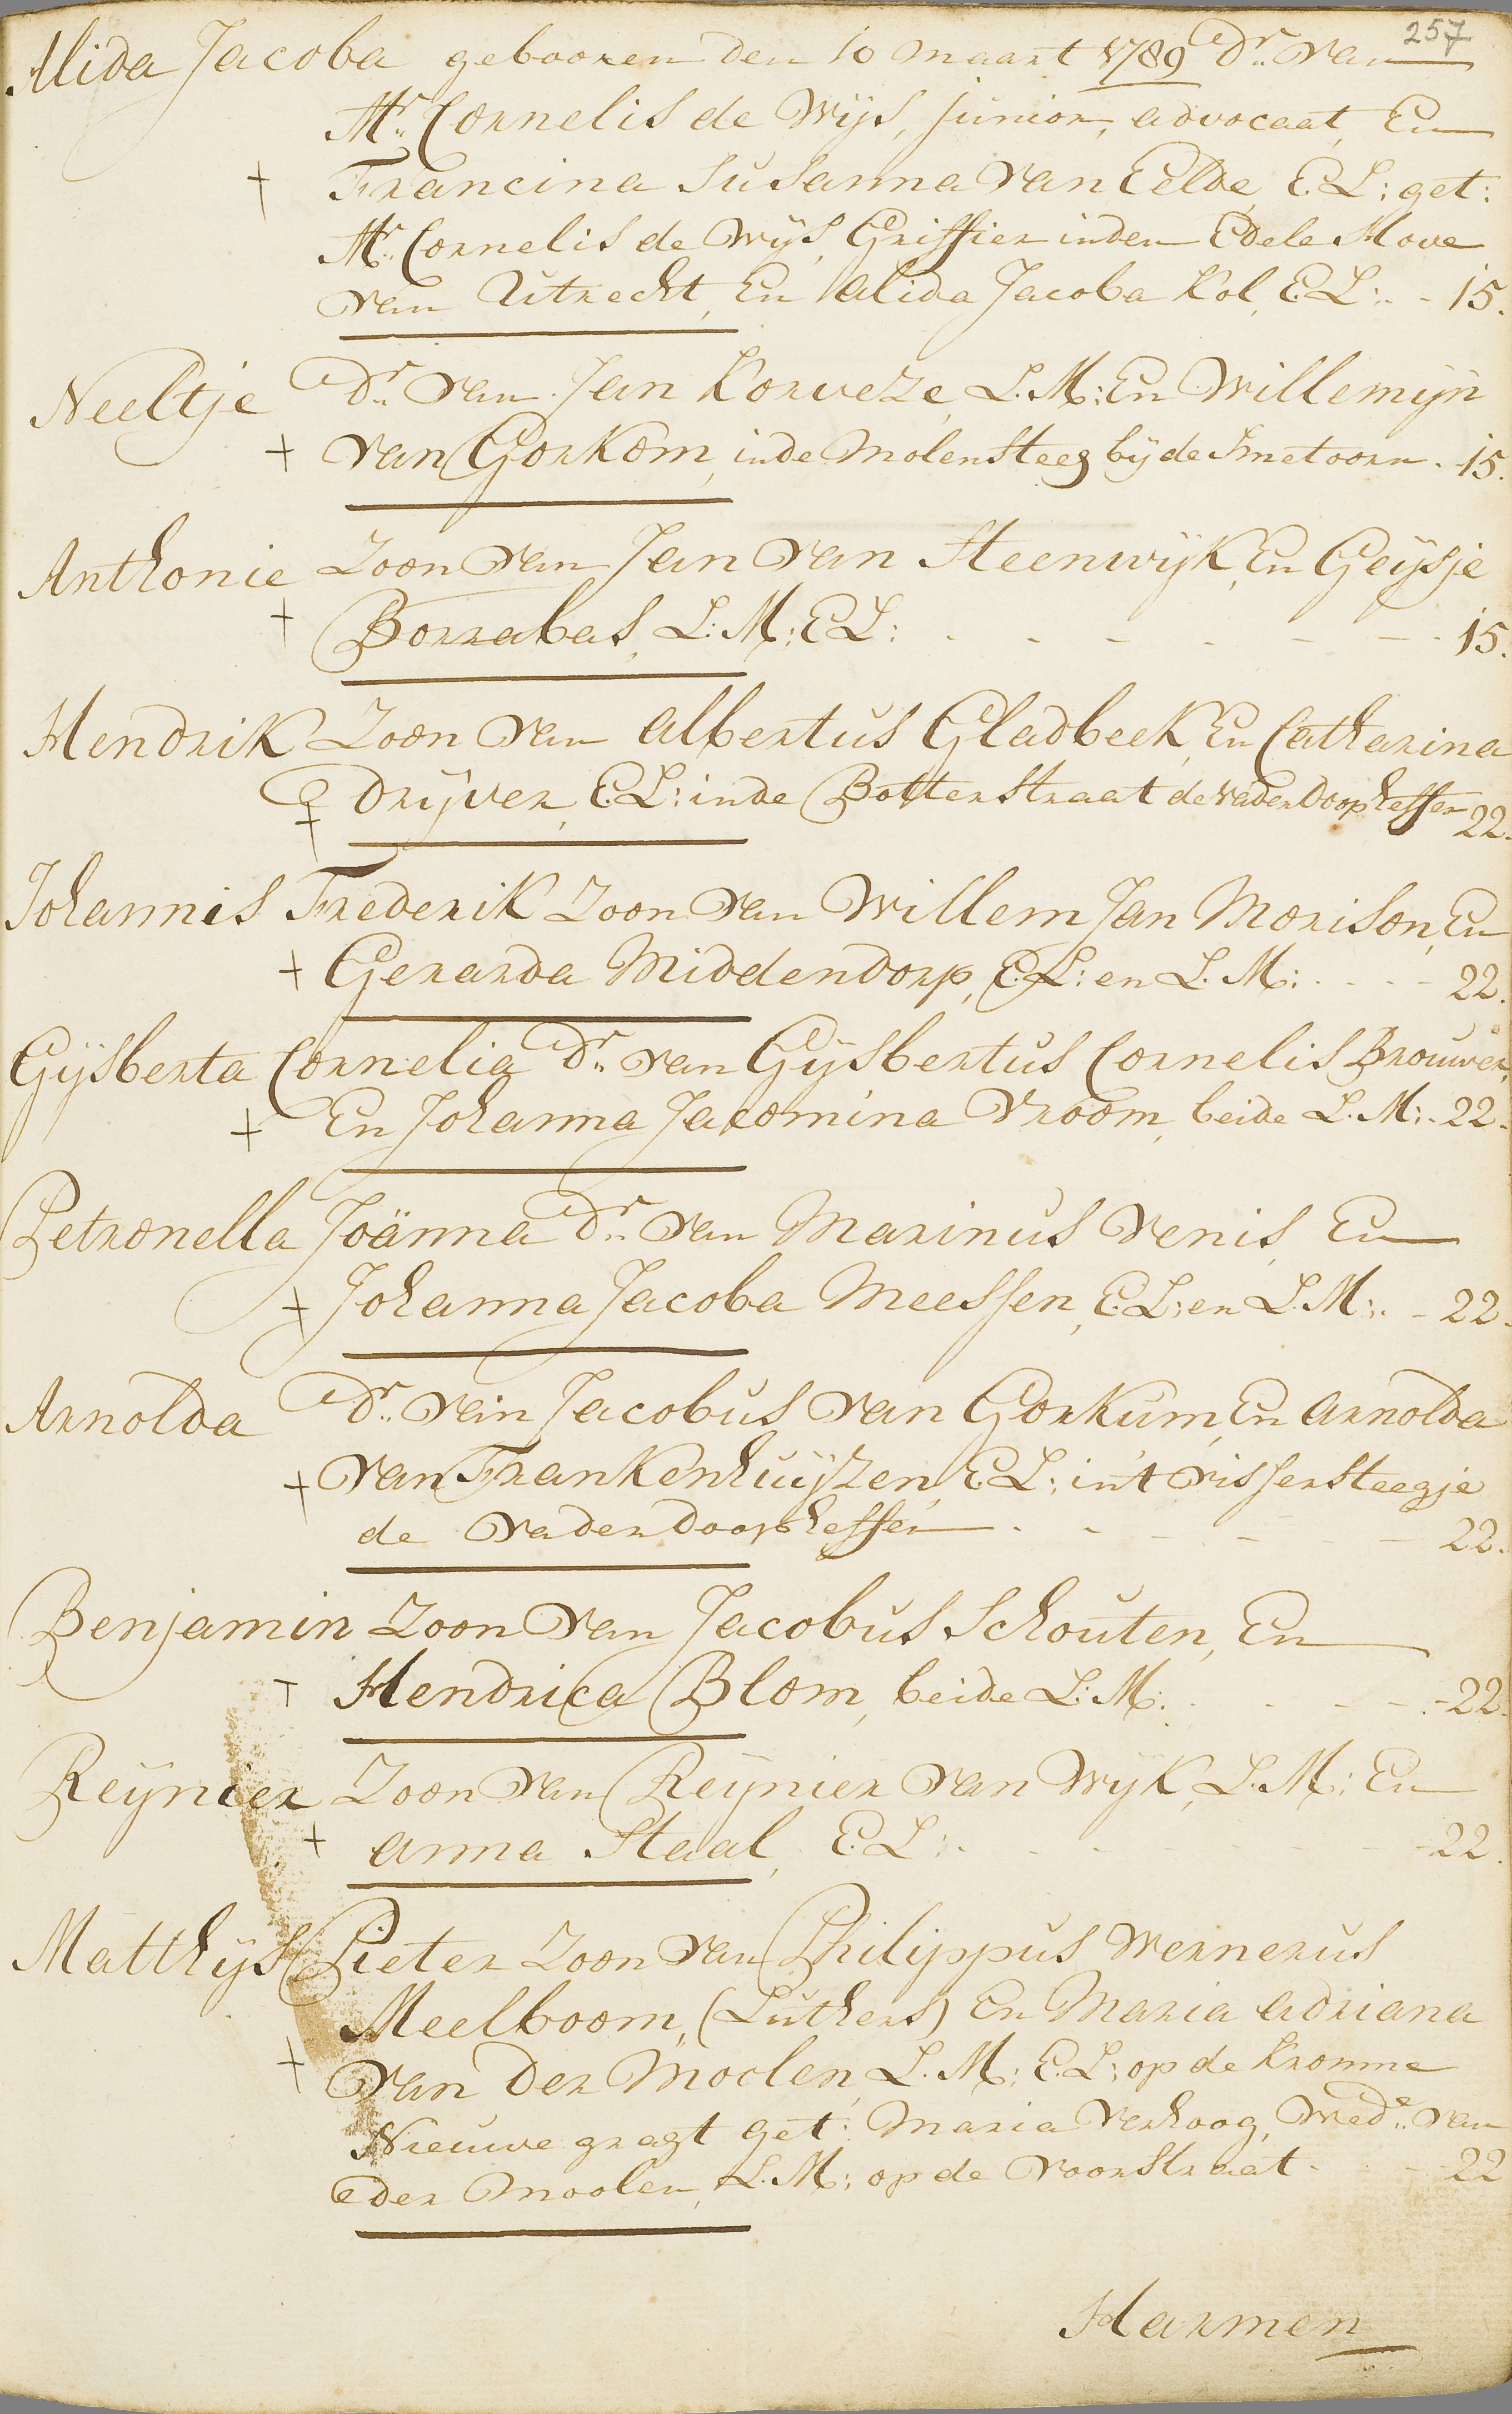 257
Alida Jacoba gebooren den 10 maart 1789 Dr. van
Mr. Cornelis de Wijs, junior, advocaat, En
+ Francina Susanna van Eelde, E.L: get:
Mr. Cornelis de Wijs, Griffier inden Edele Hove
van Utrecht, En Alida Jacoba Kol, E.L: - 15.
Neeltje Dr. van Jan Korveze, L.M: En Willemijn
+ van Gorkom, inde Molensteeg bij de Smetoorn. 15.
Anthonie Zoon van Jan van Steenwijk, En Geijsje
+ Borrabas, L:M: E.L: 15.
Hendrik Zoon van Albertus Gladbeek, En Catharina
+ Drijver, E.L: inde Botterstraat de vader Doopheffer 22.
Johannis Frederik Zoon van Willem Jan Morison, En
+ Gerarda Middendorp, E.L: en L.M: 22.
Gijsberta Cornelia Dr. van Gijsbertus Cornelis Brouwer,
+ En Johanna Jacomina Vroom, beide L.M: - 22.
Petronella Joänna Dr. van Marinus Venis, En
+ Johanna Jacoba Meessen, E.L: en L.M: - 22.
Arnolda Dr. van Jacobus van Gorkum, En Arnolda
+ van Frankenhuijzen, E.L: in't Vissersteegje
de Vader Doopheffer 22.
Benjamin Zoon van Jacobus Schouten, En
+ Hendrica Blom, beide L:M: - 22.
Reijnier Zoon van Reijnier van Wijk, L.M: En
+ Anna Staal, E.L: - 22.
Matthijs Pieter Zoon van Philippus Wernerus
Meelboom, (Luthers) En Maria Adriana
+ van Der Moolen, L.M: E.L: op de Kromme
Nieuwe gragt get: Maria Verhoog, Wede. van
der Moolen, L.M: op de Voorstraat. 22
Harmen